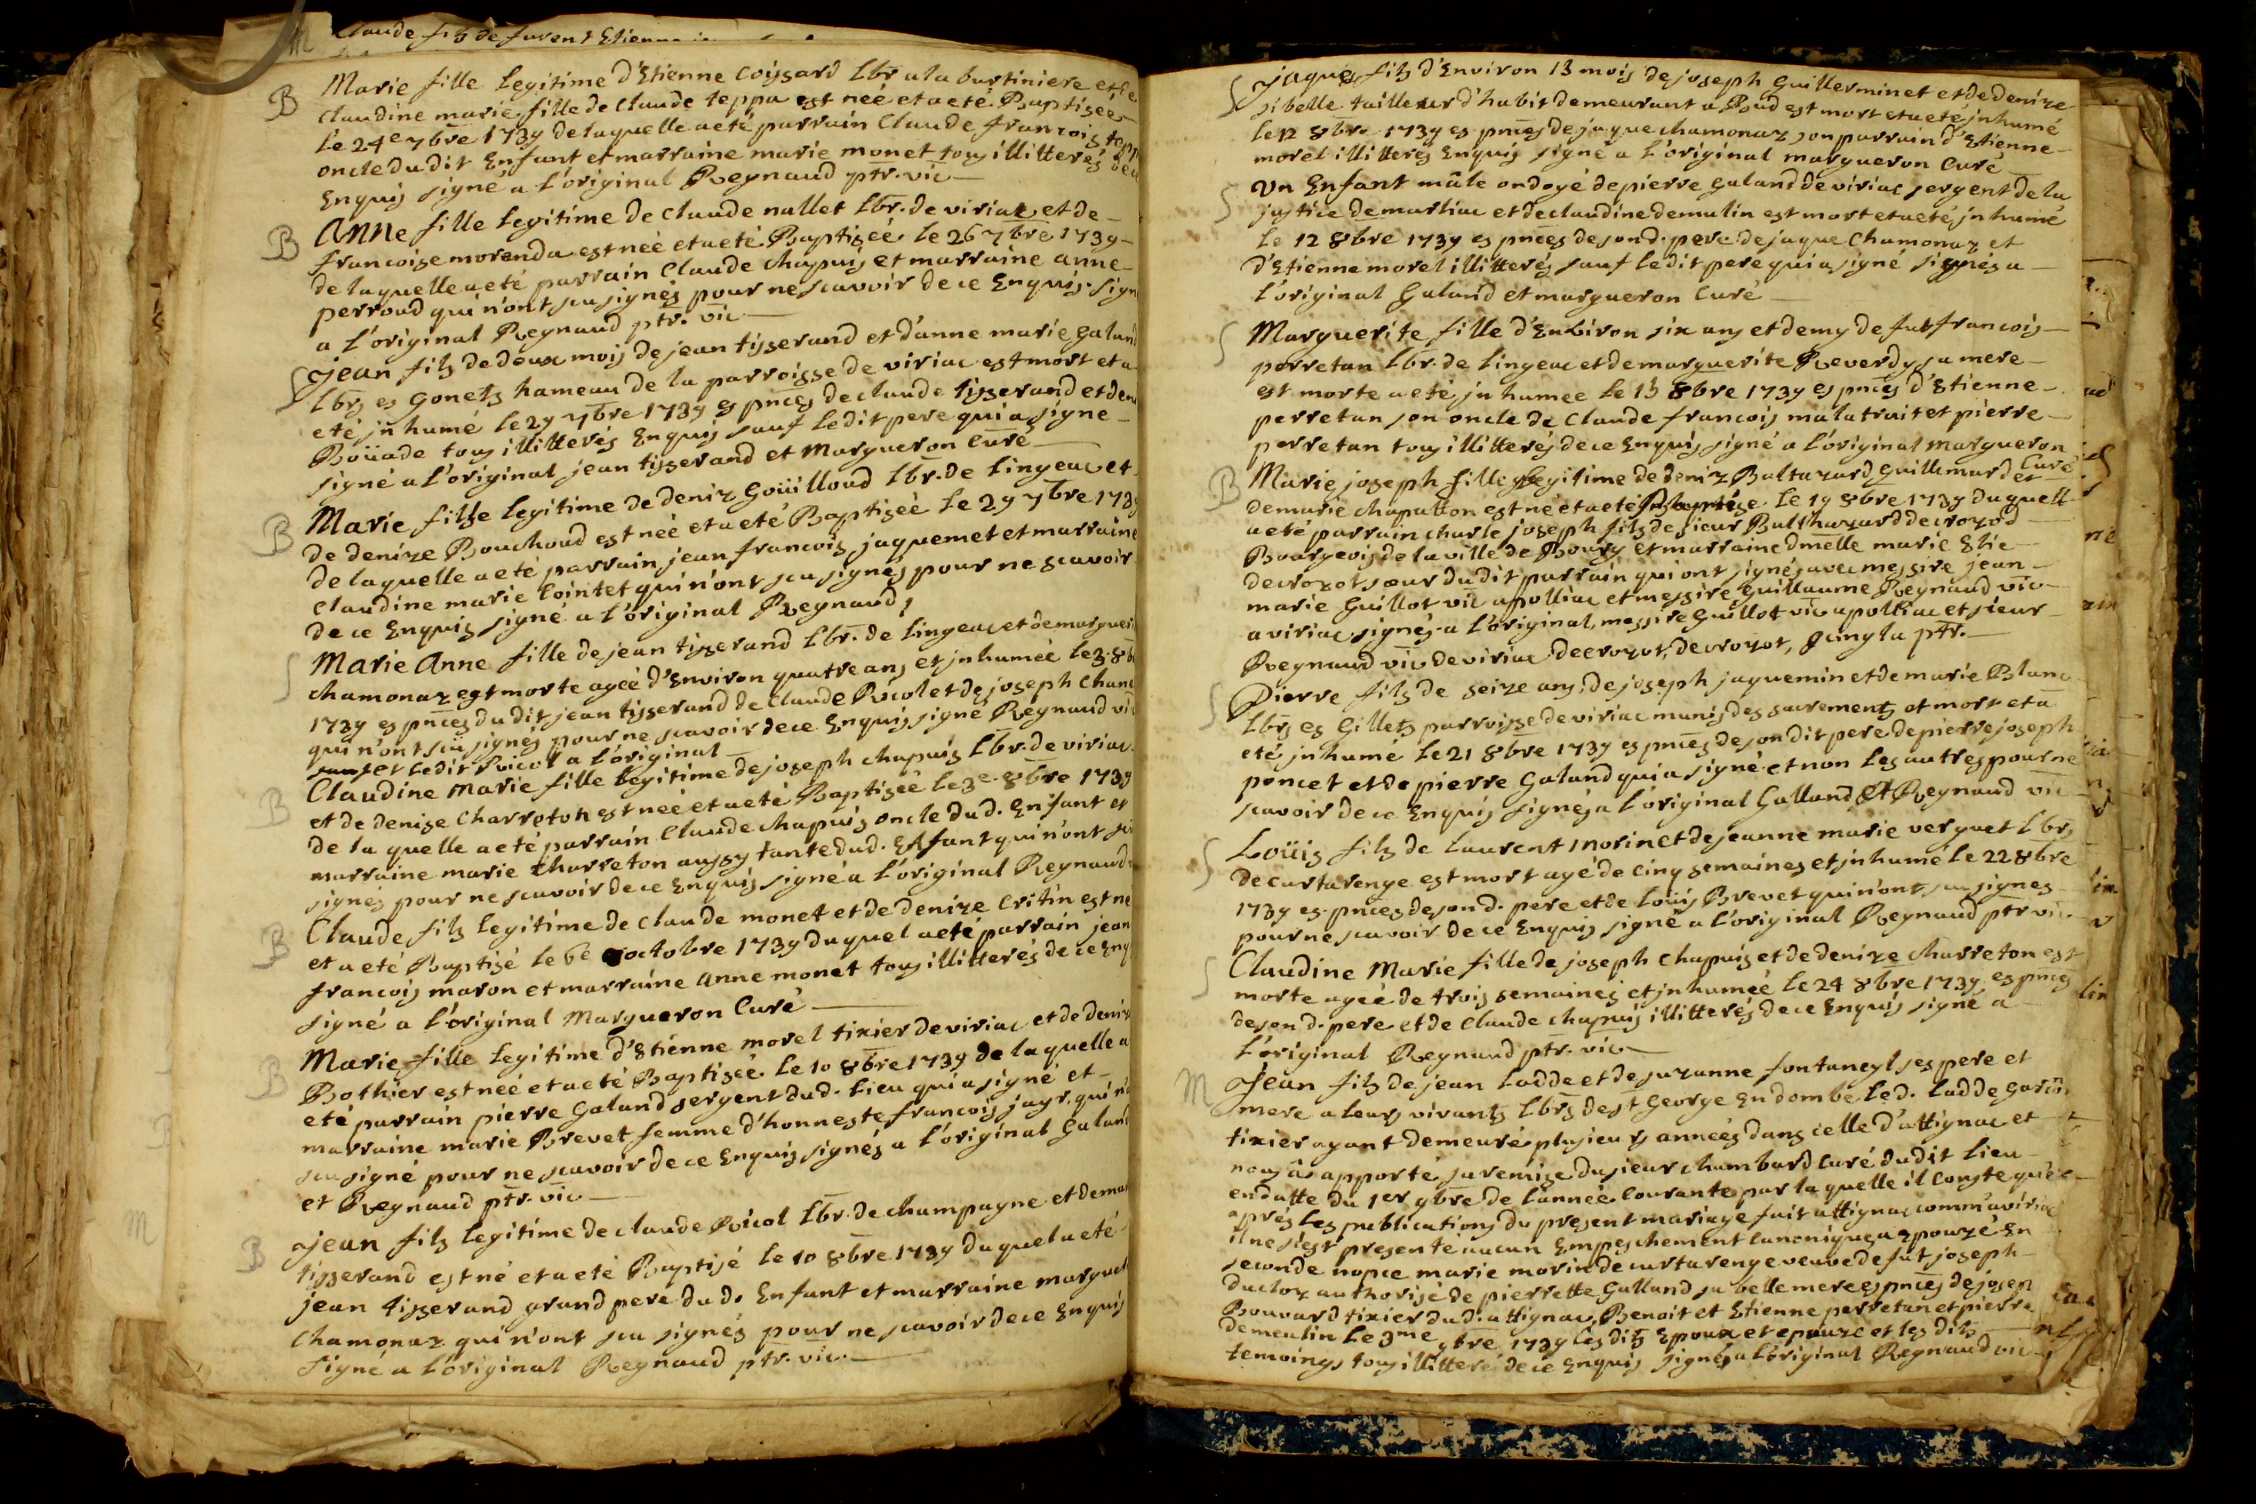 M
Claude fils de Lurent Etienne
B
Marie fille Legitime d'Etienne Coissard Lbr. a la burtiniere et de
Claudine marie fille de Claude teppa est née et a eté Baptisée
Le 24e 7bre 1739 de laquelle a eté parrain Claude francois tepp
oncle dudit Enfant et marraine marie monet tous illitterés de ce
Enquis signé a L'original Reynaud ptr. vic
B
Anne fille Legitime de Claude nallet Lbr. de viriac et de
francoise morenda est née et a eté Baptisée le 26 7bre 1739
de laquelle a eté parrain Claude Chapuis et marraine anne
perroud qui n'ont scu signés pour ne scavoir de ce Enquis. sign
a L'original Reynaud ptr. vic
S
Jean fils de deux mois de jean tisserand et d'anne marie Galand
Lbrs es Gonets hameau de la parroisse de viriac est mort et a
eté jnhumé le 29 7bre 1739 es pnces de claude tisserand et den
Boüade tous illitterés Enquis sauf Ledit pere qui a signe
signé a L'original jean tisserand et Margueron Curé
B
Marie fille Legitime de deniz Goüilloud Lbr. de Lingeac et
de denize Bouchoud est née et a eté Baptisée Le 29 7bre 1739
de laquelle a eté parrain jean francois jaquemet et marraine
Claudine marie Cointet qui n'ont scu signés pour ne scavoir
de ce Enquis signé a L'original Reynaud
S
Marie Anne fille de jean tisserand Lbr. de Lingeac et de marguer
chamonaz est morte ageé d'Environ quatre ans et jnhumeé le 3 8b
1739 es pnces dudit jean tisserand de Claude Ricol et de joseph Cham
qui n'ont scu signés pour ne scavoir de ce Enquis signé Reynaud vic
et Ledit Ricol a L'original
B
Claudine Marie fille Legitime de joseph chapuis Lbr. de viriac
et de denise Charreton est née et a eté Baptiseé le 3e 8bre 1739
de la quelle a eté parrain Claude chapuis oncle dud. Enfant et
marraine marie Charreton aussy tante dud. Enfant qui n'ont scu
signés pour ne scavoir de ce Enquis signé a L'original Reynaud
B
Claude fils Legitime de Claude monet et de denize Critin est ne
et a eté Baptisé le 6e octobre 1739 duquel a eté parrain jean
francois maron et marraine Anne monet tous illitterés de ce Enq
signé a L'original Margueron Curé
B
Marie fille Legitime d'Etienne morel tixier de viriac et de deniz
Bothier est née et a eté Baptiseé Le 10 8bre 1739 de la quelle a
eté parrain pierre Galand sergent dud. Lieu qui a signé et
marraine marie Brevet femme d'honneste francois jayr. qui n'
scu signé pour ne scavoir de ce Enquis signés a L'original Galand
et Reynaud ptr. vic
B
Jean fils Legitime de Claude Ricol Lbr. de champagne et de mar
tisserand est né et a eté Baptisé le 10 8bre 1739 duquel a eté
jean tisserand grand pere dud. Enfant et marraine marguer
Chamonaz qui n'ont scu signés pour ne scavoir de ce Enquis
Signé a L'original Reynaud ptr. vic.
S
Jaques fils d'Environ 13 mois de joseph Guillerminet et de denize
sibelle tailleur d'habit demeurant a Roud est mort et a eté jnhumé
le 12 8bre 1739 es pnces de jaque chamonaz son parrain d'Etienne
morel illitterés Enquis signé a L'original margueron Curé
S
Un Enfant mâle ondoyé de pierre Galand de viriac sergent de la
justice de marliac et de claudine demulin est mort et a eté jnhumé
le 12 8bre 1739 es pnces de son d. pere de jaque Chamonaz et
d'Etienne morel illitterés sauf ledit pere qui a signé signés a
L'original Galand et margueron Curé
S
Marguerite fille d'Environ six ans et demy de fut francois
perretan Lbr. de Lingeac et de marguerite Reverdy sa mere
est morte a eté jnhumeé Le 13 8bre 1739 es pnces d'Etienne
perretan son oncle de Claude francois malatrait et pierre
perretan tous illitterés de ce Enquis signé a L'original margueron
Curé
B
Marie joseph fille Legitime de deniz Baltazard Guillemardet
de marie chapatton est neé et a eté Baptise Le 19 8bre 1739 duquell
a eté parrain charle joseph fils de sieur Balthazard decrozod
Bourgeois de la ville de Bourg et marraine dmelle marie Elie
decrozot sœur dudit parrain qui ont signés avec messire jean
marie Guillot vic a polliac et messire Guillaume Reynaud vic
a viriac signés a L'original, messire Guillot vic a polliac et sieur
Reynaud vic de viriac decrozot, decrozot, ptr.
S
Pierre fils de seize ans, de joseph jaquemin et de marie Blanc
Lbrs es Gillets parroisse de viriac munis des sacrements et mort et a
eté jnhumé Le 21 8bre 1739 es pnces de son dit pere de pierre joseph
poncet et de pierre Galand qui a signé et non Les autres pour ne
scavoir de ce Enquis signés a L'original Galland Et Reynaud vic
S
Loüis fils de Laurent morin et de jeanne marie verguet Lbrs
de curtarenge est mort agé de cinq semaines et jnhumé le 22 8bre
1739 es pnces de son d. pere et de Loüis Brevet qui n'ont scu signes
pour ne scavoir de ce Enquis signé a L'original Reynaud ptr vic
S
Claudine Marie fille de joseph Chapuis et de denize charreton est
morte ageé de trois semaines et jnhumeé Le 24 8bre 1739 es pnces
de son d. pere et de Claude Chapuis illitterés de ce Enquis signé a
L'original Reynaud ptr. vic
M
Jean fils de jean Ladde et de suzanne fontaneyl ses pere et
mere a leurs vivants Lbrs de st George En dombe Led. Ladde Garçon
tixier ayant demeuré plusieurs anneés dans celle d'attignac et
nous as apporté sa remise du sieur chambard Curé dudit Lieu
en datte du 1er 9bre de L'anneé Courante par la quelle il Conste que
aprés Les publications du present mariage fait attignac comm'a viriac
il ne s'est presenté aucun Empeschement canonique a epouzé En
seconde nopce marie morin de curtarenge veuve de fut joseph
duclos authorise de pierrette Galland sa belle mere es pnces de joseph
Bouvard tixier dud. attignac, Benoit et Etienne perretan et pierre
demeulin Le 3me 9bre 1739 Les dits Epoux et epouze et les dits
temoings tous illitteré de ce Enquis signés a L'original Reynaud vic